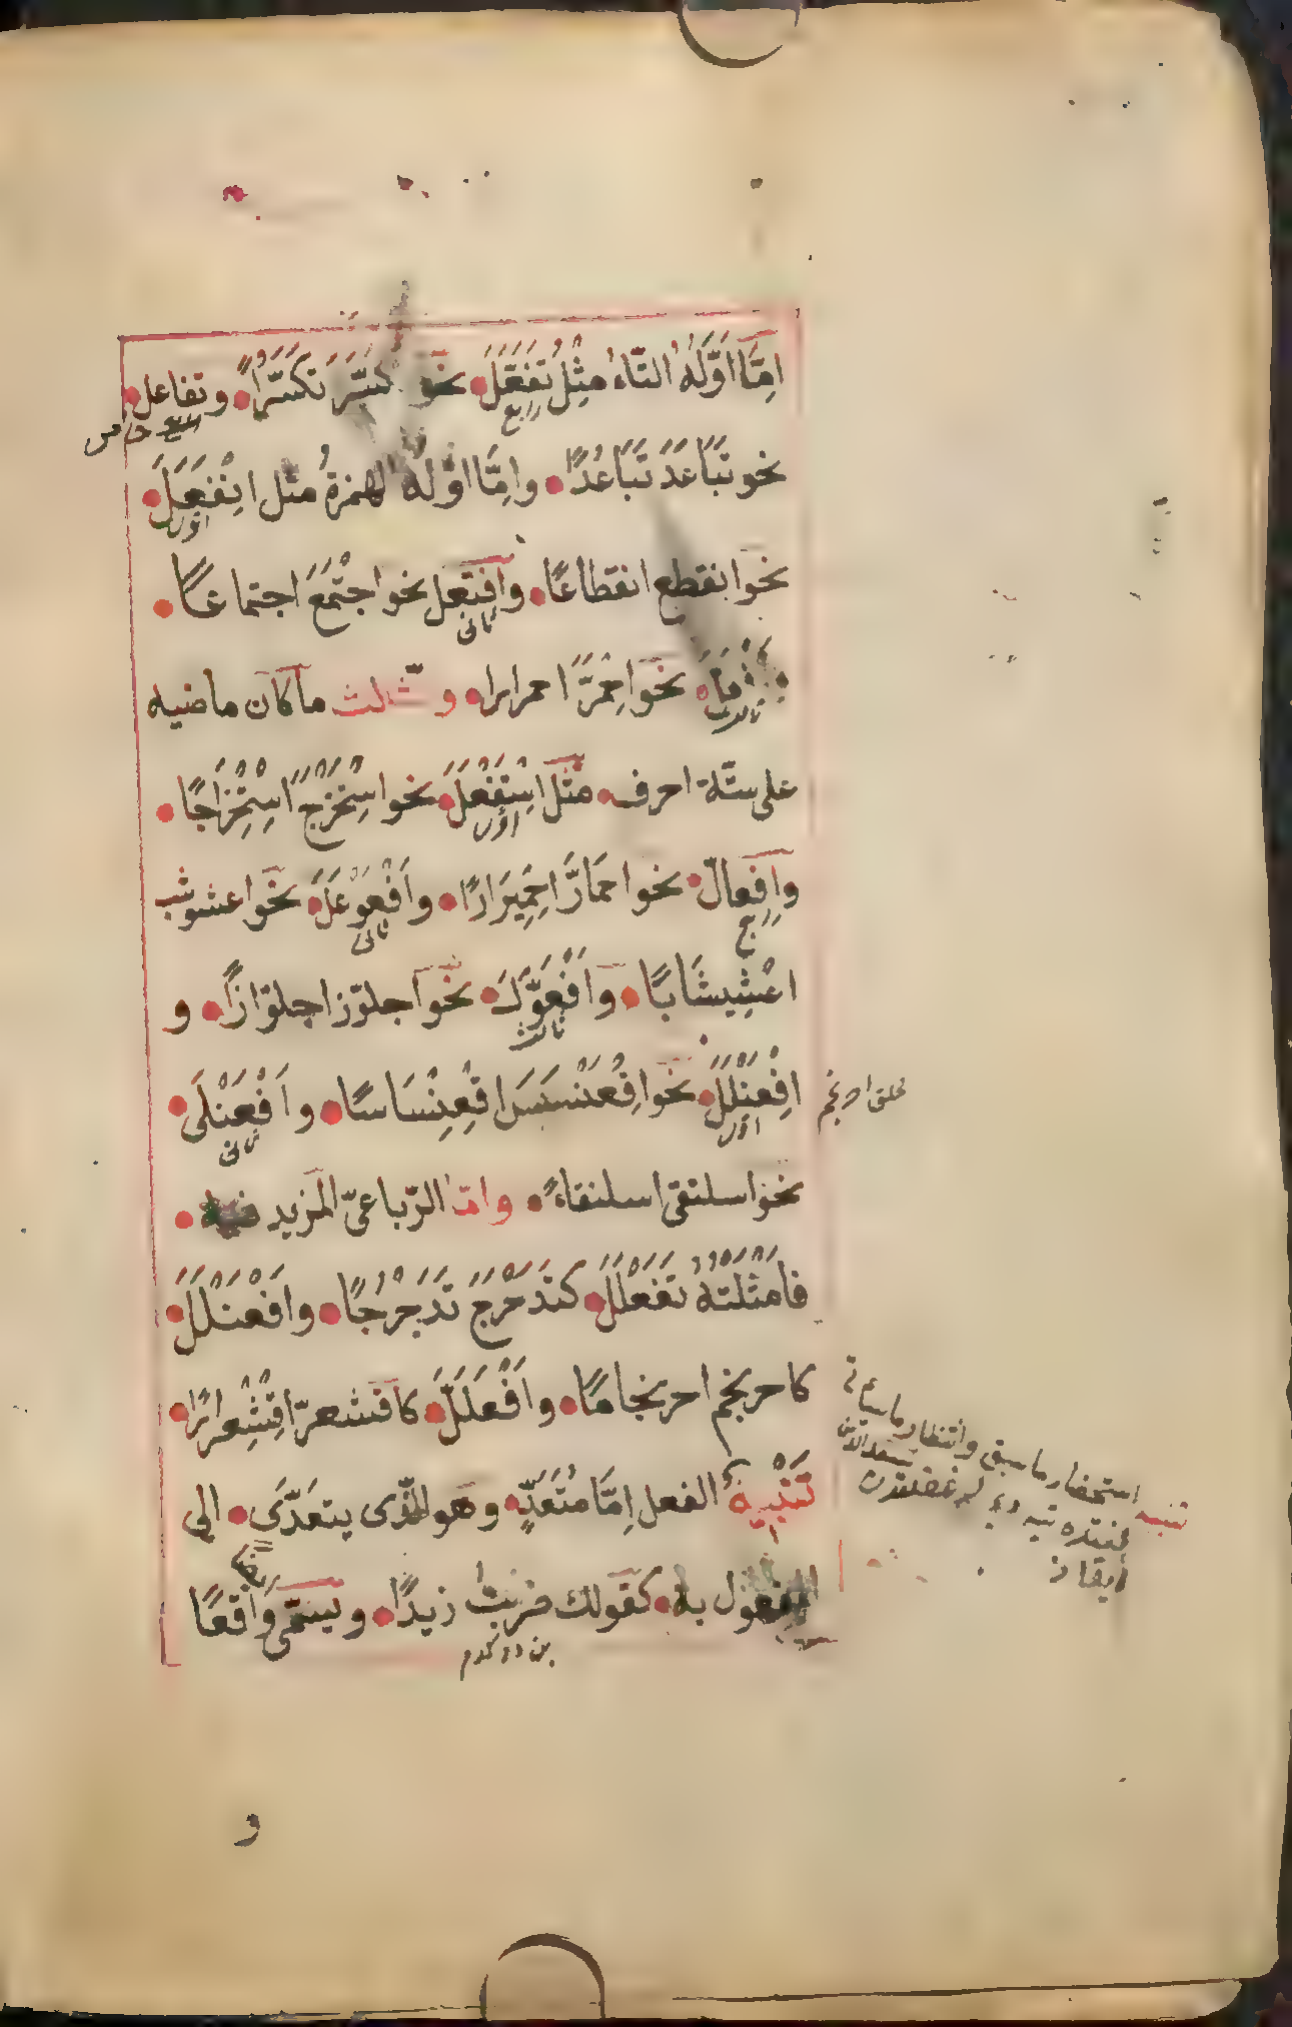 اِمَّا اَوَّلُهُ التّاءُ مِثْلُ تَفَعَّلَ نحو كسَّرَ تَكَسُّرًا وتفاعل
رابع
خامس
نحو تَبَاعَدَ تَبَاعُدًا وامَّا اوّله الهمزةُ مثل اِنْفَعَلَ
اول
نحو انقطع انقطاعًا وافتعل نحو اجْتَمَعَ اجتماعًا
ثانى
نحو اِحْمَرَّ احمرارا والثالث ما كان ماضيه
ثالث
على ستّة احرف مثل اسْتَفْعَلَ نحو اسْتَخْرَجَ اسْتِخْرَاجًا
اول
وافعالّ نحو احمَارَّ احْمِيرَارًا وافْعَوْعَلَ نحو اعشوشب
رابع
ثانى
اعْشِيشَابًا وافْعَوَّلَ نحو اجلوّز اجلوّازًا و
ثالث
افْعَنْلَلَ نحو اقْعَنْسَسَ اقْعِنْسَاسًا وافْعَنْلَى
اول
ثانى
نحو اسلنقى اسلنقاءً وامّا الرّباعىّ المزيد فيه
فامْثلتهُ تَفَعْلَلَ كتَدَحْرَجَ تَدَحْرُجًا وافْعَنْلَلَ
كاحرنجم احرنجامًا وافْعَلَلَّ كاقشعرّ اقْشِعْرَارًا
تَنْبِيهٌ الفعل اِمَّا مُتَعَدٍّ وهو الّذى يتعَدَّى الى
المفعول به كقولك ضربتُ زيدًا ويسمّى واقعًا
ايضا
تنبيه استحضار ما سبق وانتظار ما سيأتى
سعد الدين
ايقاذ
و